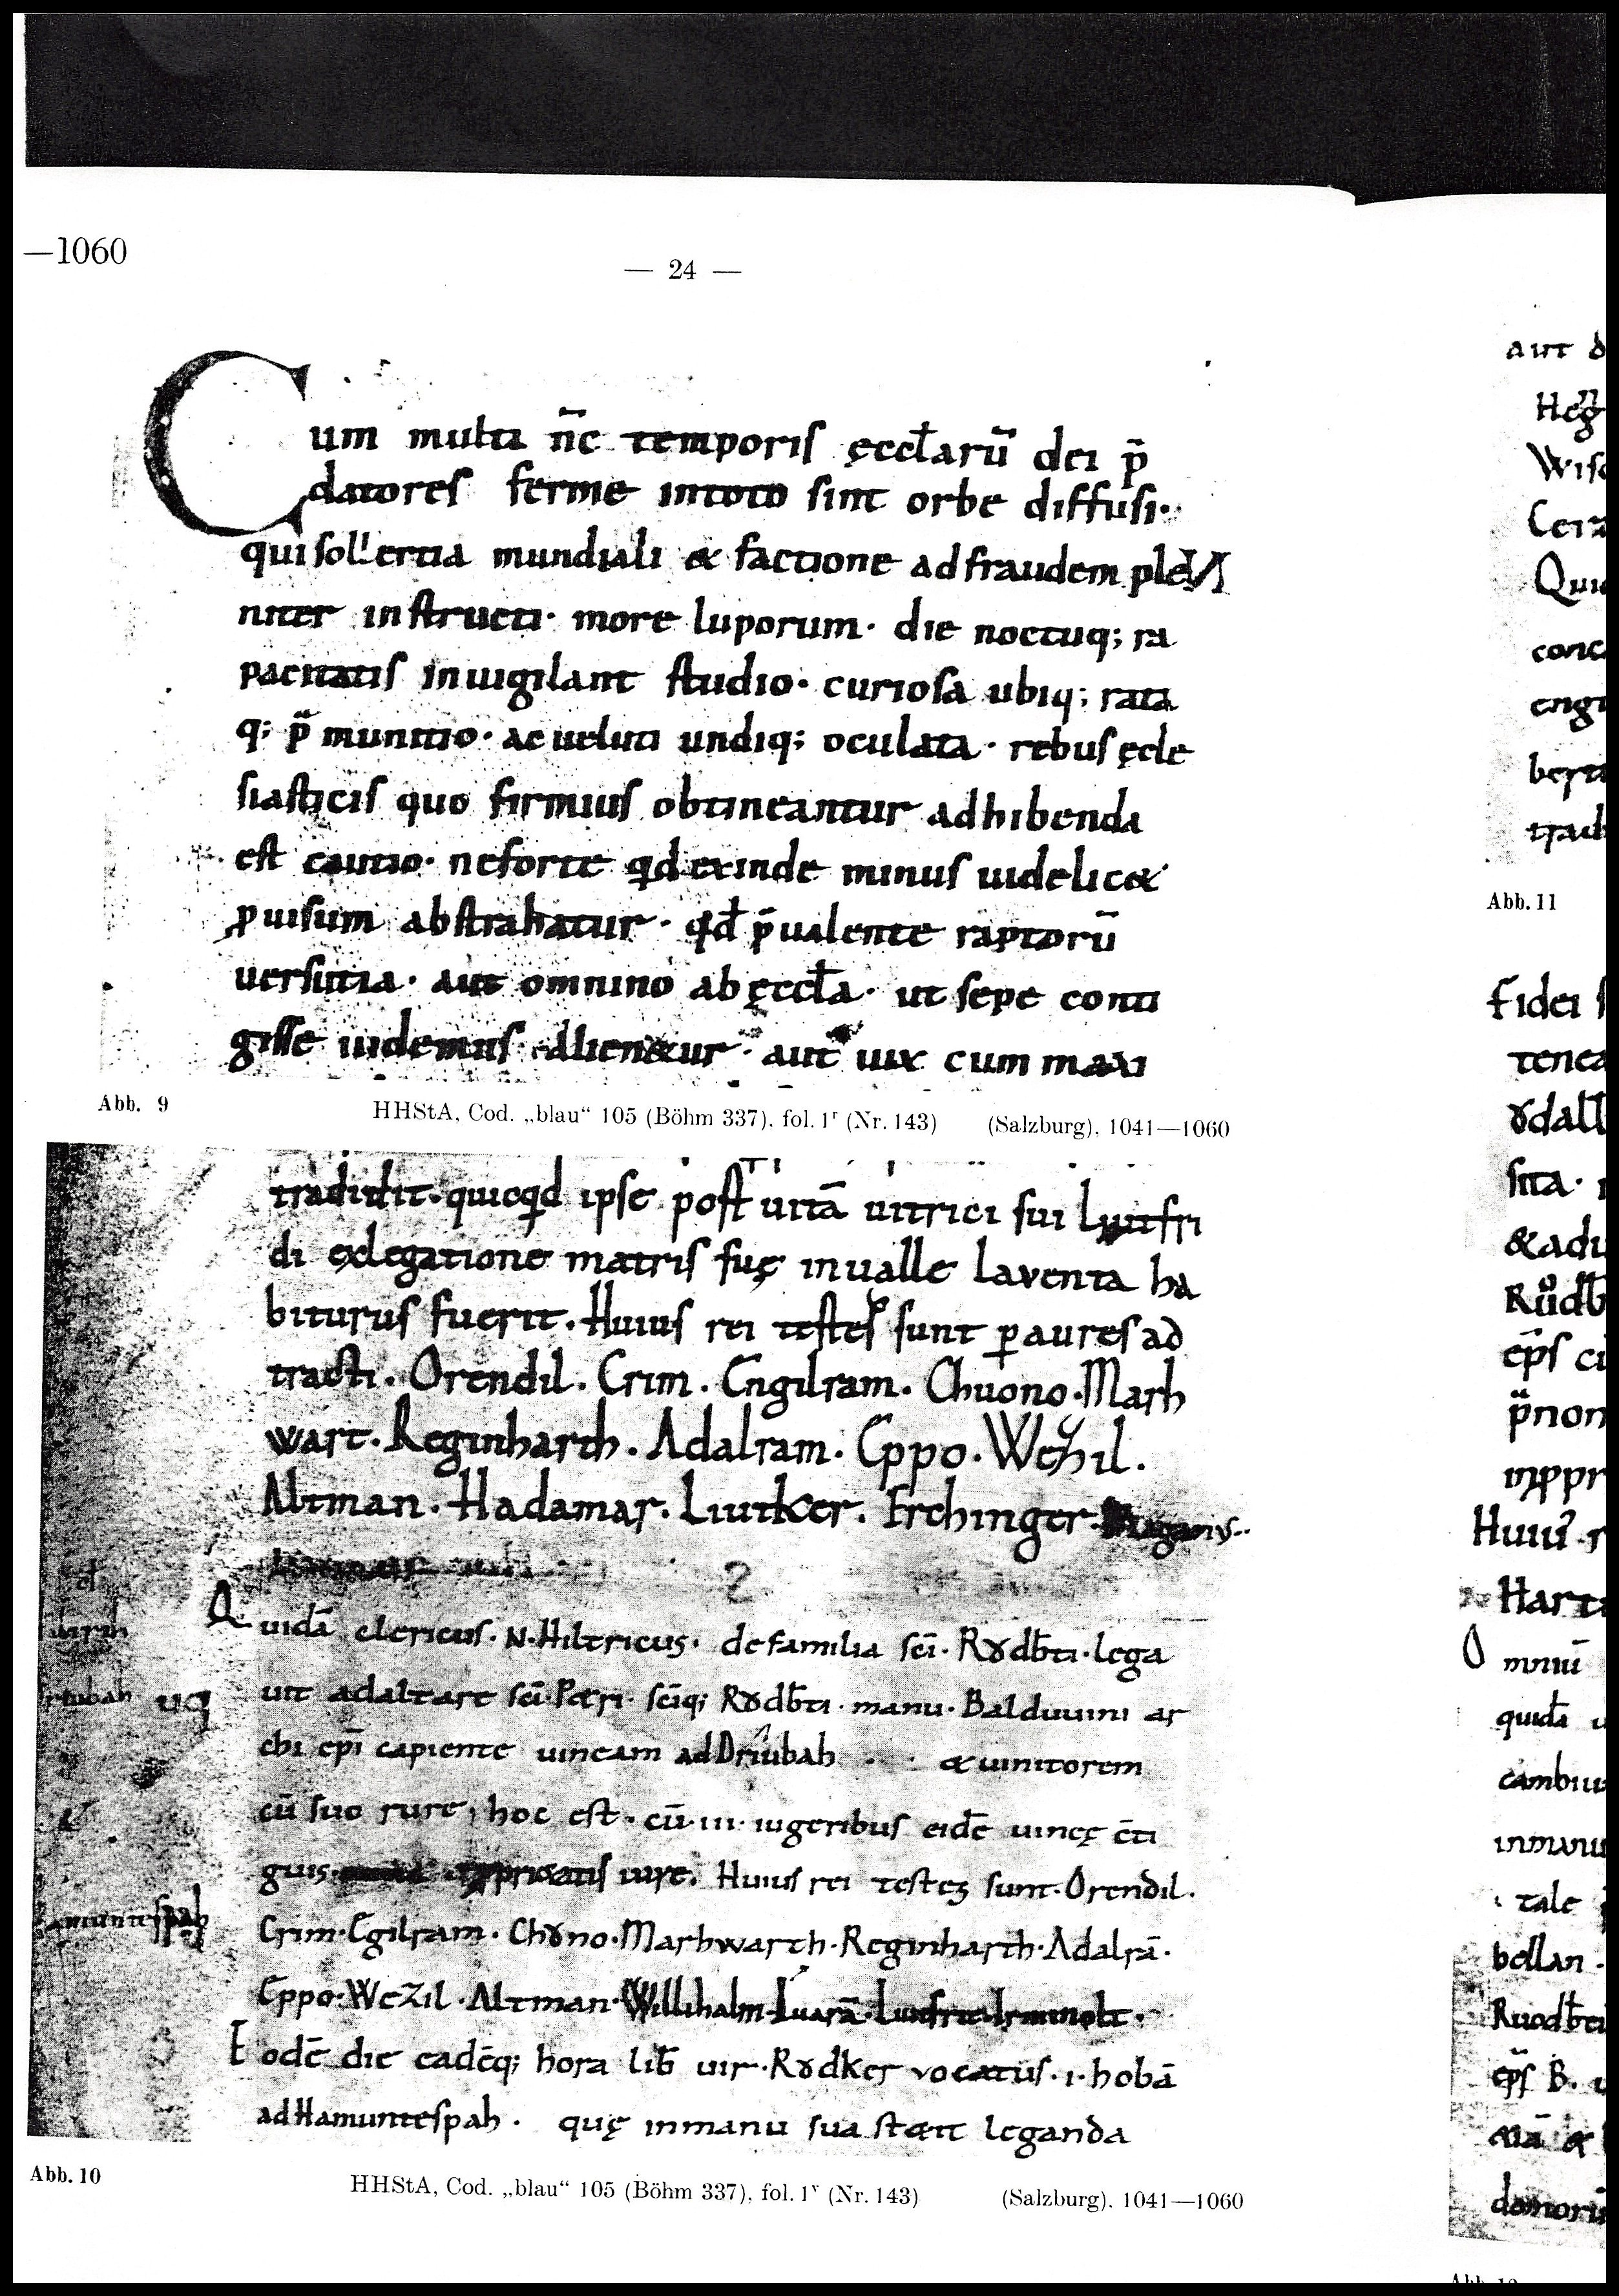 —1060
— 24 —
Cum multi nc̄ temporis ęccl̄arū dei p̄
datores ferme intoto sint orbe diffusi·
qui sollertia mundiali & factione ad fraudem
niter instructi· more luporum· die noctuq; ra
pacitatis inuigilant studio· curiosa ubiq; rata
q; p̄ munitio· ac ueluti undiq; oculata· rebus ęcle
siasticis quo firmius obtineantur adhibenda
est cautio· neforte qd exinde minus uidelic&
ꝓuisum abstrahatur· qd̄ p̄ualente raptorū
uersutia· aut omnino ab ęccl̄a· ut sepe conti
gisse uidemus· alien&ur· aut uix cum maxi
Abb. 9
HHStA, Cod. „blau“ 105 (Böhm 337), fol. 1ʳ (Nr. 143) (Salzburg), 1041—1060
tradidit· quicqd ipse post uitā uitrici sui Liutfri
di exlegatione matris suę inualle laventa ha
biturus fuerit. Huius rei testes sunt ꝑ aures ad
tracti. Orendil. Crim. Engilram. Chuono. Marh
wart. Reginharth. Adalram. Eppo. Wezil.
Altman. Hadamar. Liutker. Erchinger.
Quidā clericus· N· Hiltricus· defamilia sc̄i· Rȣdb̄ti· lega
uit adaltare sc̄i· P&ri· sc̄iq; Rȣdb̄ti· manu· Balduuini ar
chi ep̄i capiente uineam ad Driûbah & uinitorem
cū suo rure, hoc est· cū· iii· iugeribus eidē uinęę c̄ti
guis· priuatis iure. Huius rei testes sunt· Orendil.
Crim· Egilram· Chȣno· Marhwarth· Reginharth· Adalrā·
Eppo· Wezil· Altman· Willihalm· Liutfrit· Irminolt·
Eodē die eadēq; hora lib̄ uir· Rȣdker vocatus· i· hobā
ad Hamuntespah· quę inmanu sua stetit leganda
Abb. 10
HHStA, Cod. „blau“ 105 (Böhm 337), fol. 1ᵛ (Nr. 143) (Salzburg), 1041—1060
aut
Wis
Qui
conc
engi
trad
Abb. 11
Fidei
tenea
sita·
&adu
ep̄s ci
p̄non
Hart
Omniū
quidā
cambiu
inmanu
tale
ep̄s B.